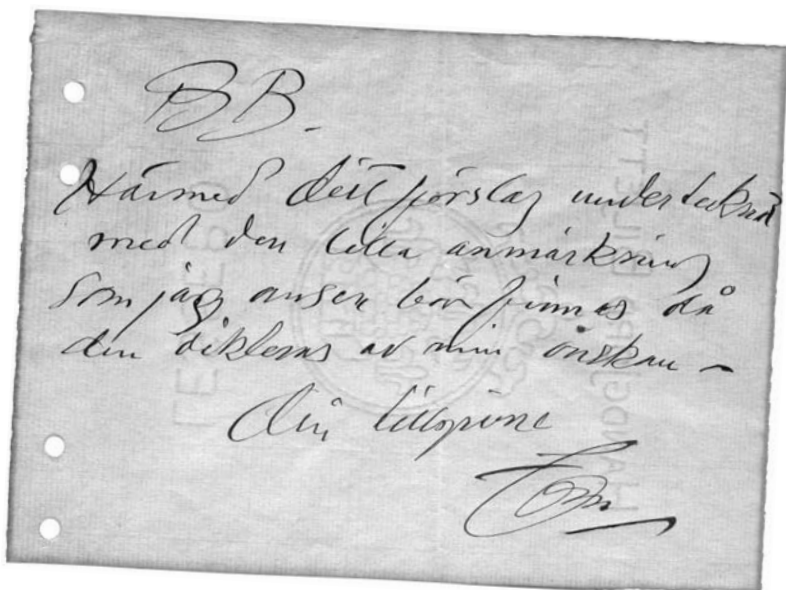 BB.
Härmed ditt förslag undertecknat
med den lilla anmärkning
som jag anser bör finnas då
den dikteras av min önskan –
Din tillgivne